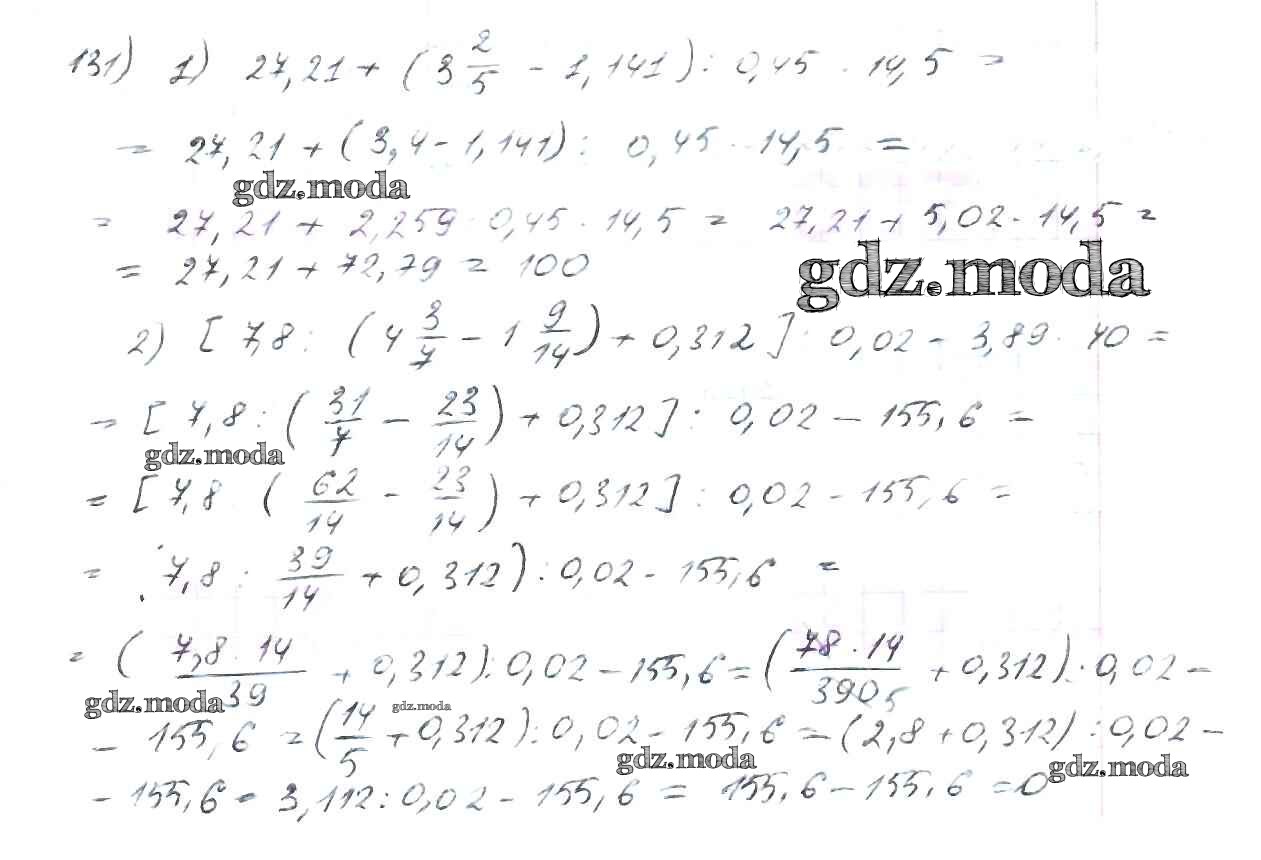 131) 1) 27,21 + (3 2/5 - 1,141) : 0,45 · 14,5 =
= 27,21 + (3,4 - 1,141) : 0,45 · 14,5 =
gdz.moda
= 27,21 + 2,259 : 0,45 · 14,5 = 27,21 + 5,02 · 14,5 =
gdz.moda
= 27,21 + 72,79 = 100
2) [ 7,8 : (4 3/7 - 1 9/14) + 0,312 ] : 0,02 - 3,89 · 40 =
= [ 7,8 : (31/7 - 23/14) + 0,312 ] : 0,02 - 155,6 =
gdz.moda
= [ 7,8 (62/14 - 23/14) + 0,312 ] : 0,02 - 155,6 =
= 7,8 : 39/14 + 0,312) : 0,02 - 155,6 =
= (7,8 · 14/39 + 0,312) : 0,02 - 155,6 = (78 · 14/390 5 + 0,312) : 0,02 -
gdz.moda
gdz.moda
- 155,6 = (14/5 + 0,312) : 0,02 - 155,6 = (2,8 + 0,312) : 0,02 -
gdz.moda
gdz.moda
- 155,6 = 3,112 : 0,02 - 155,6 = 155,6 - 155,6 = 0